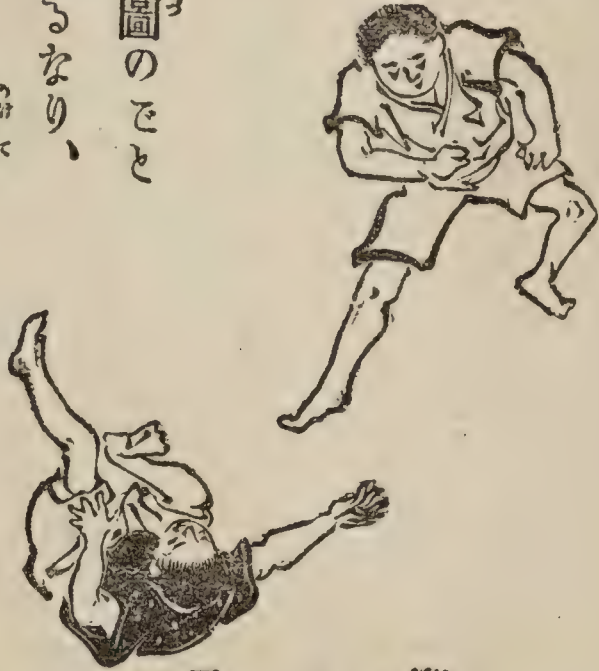 圖のごと
るなり、